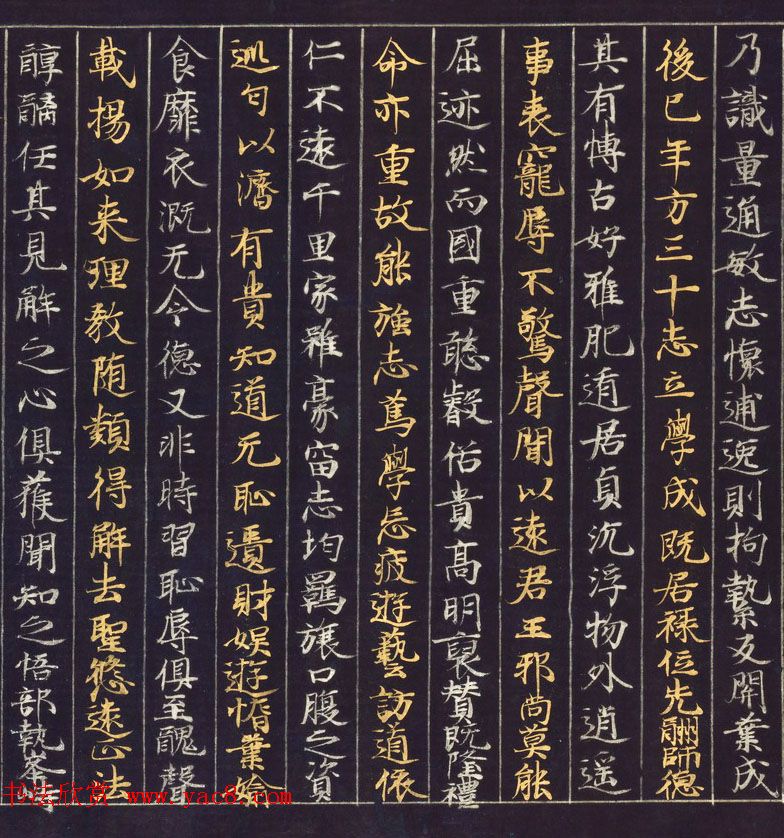 乃識量通敏志懷逋逸則拘縶友開葉成
後已年方三十志立學成既居祿位先酬師德
其有愽古好雅肥遁居貞沉浮物外逍遥
事表寵辱不驚聲聞以遠君王邪尚莫能
屈迹然而國重聦叡俗貴髙明襃賛既隆禮
命亦重故能強志萬學忘疲遊藝訪道依
仁不遠千里家雖豪富志均羈旅口腹之資
巡匄以濟有貴知道无恥遺財娯遊惰葉媮
食靡衣溉无令德又非時習恥辱俱至醜聲
載揚如来理教随類得解去聖悠遠正法
醇醨任其見解之心俱獲聞知之悟部執峯峙
书法欣赏 www.yac8.com